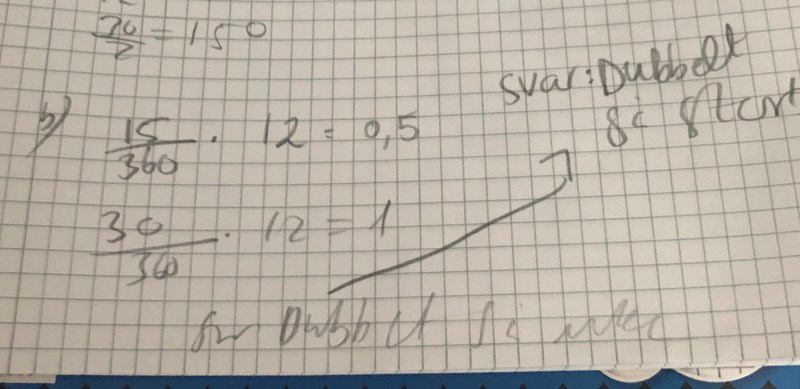 30/2 = 15°
svar: Dubbelt
så stort
b) 15/360 · 12 = 0,5
30/360 · 12 = 1
Dubbelt så